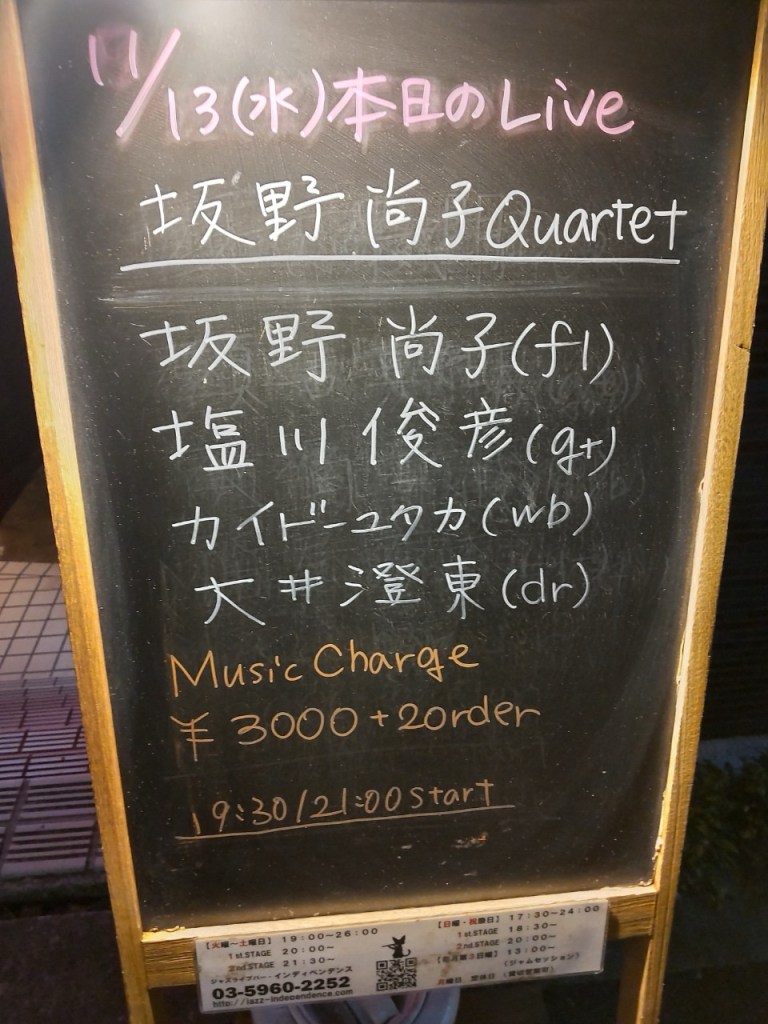 11/13(水)本日のLive
坂野 尚子Quartet
坂野 尚子(fl)
塩川 俊彦(gt)
カイドーユタカ(wb)
大井澄東(dr)
Music Charge
¥3000+2order
19:30/21:00start
【火曜～土曜日】 19:00~26:00
1st.STAGE 20:00~
2nd.STAGE 21:30~
ジャズライブバー・インディペンデンス
03-5960-2252
http://jazz-independence.com
【日曜・祝祭日】 17:30~24:00
1st.STAGE 18:30~
2nd.STAGE 20:00~
【毎月第3日曜】 13:00~
(ジャムセッション)
月曜日 定休日